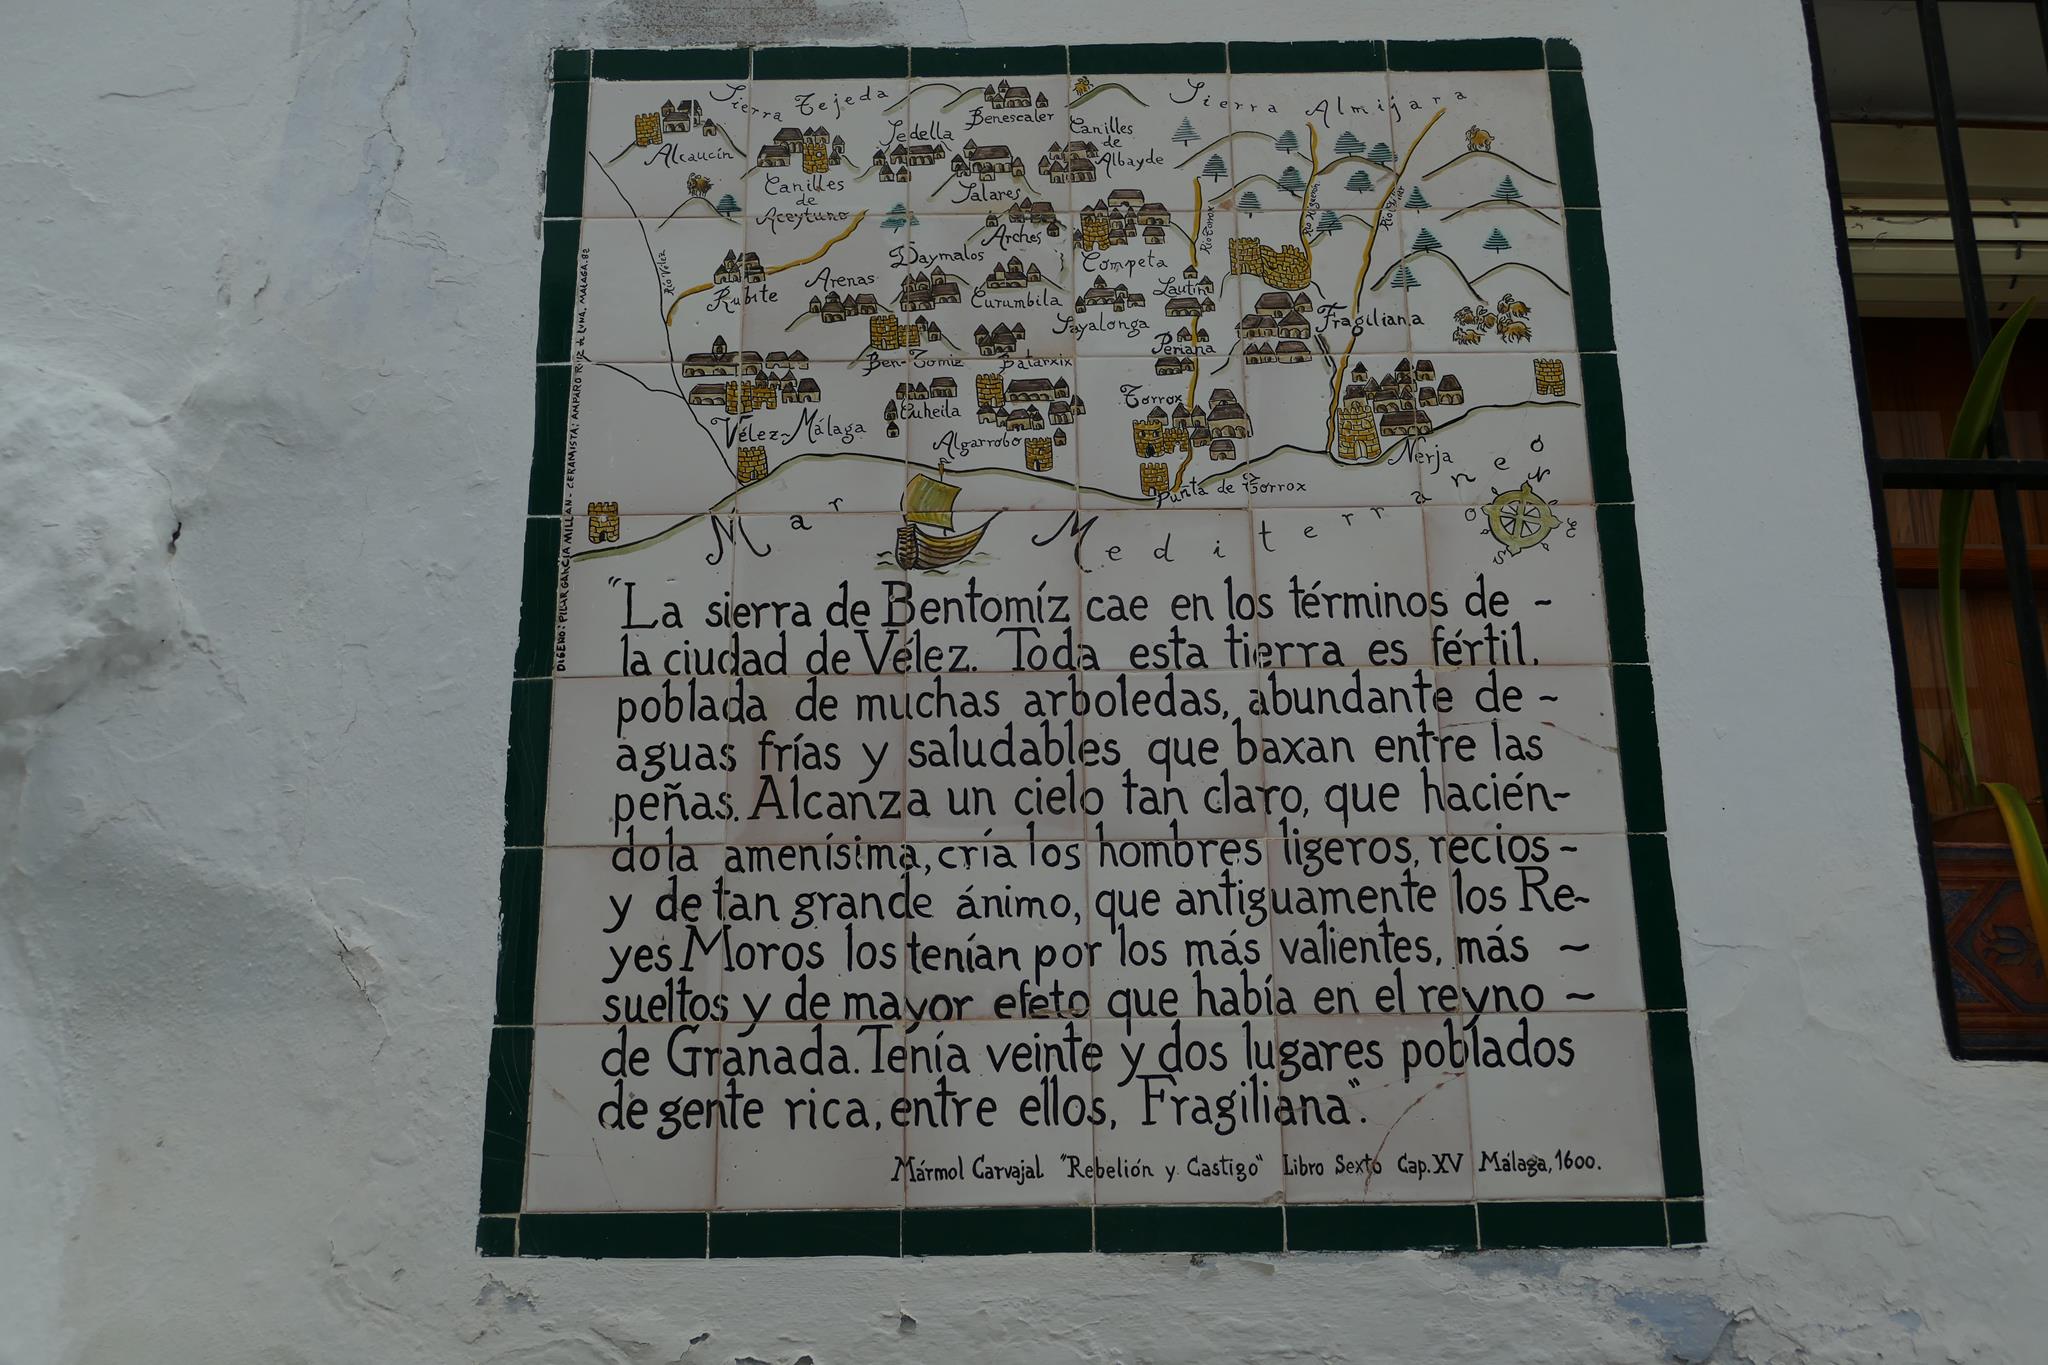 Sierra Tejeda
Sierra Almijara
Benescaler
Sedella
Canilles
de
Albayde
Alcaucín
Canilles
de
Aceytuno
Salares
Arches
Río Vélez
Río Torrox
Río Higuerón
Daymalos
Competa
Rubite
Arenas
Curumbila
Lautín
Sayalonga
Fragiliana
Periana
Ben-Tomiz
Batarxix
Torrox
Cuheila
Vélez-Málaga
Algarrobo
Nerja
Punta de Torrox
Mar Mediterraneo
N
E
S
O
DISEÑO: PILAR GARCÍA MILLÁN - CERAMISTA: AMPARO RUIZ de LUNA. MÁLAGA. 82
"La sierra de Bentomíz cae en los términos de ~
la ciudad de Vélez. Toda esta tierra es fértil,
poblada de muchas arboledas, abundante de ~
aguas frías y saludables que baxan entre las
peñas. Alcanza un cielo tan claro, que hacién-
dola amenísima, cría los hombres ligeros, recios ~
y de tan grande ánimo, que antiguamente los Re-
yes Moros los tenían por los más valientes, más ~
sueltos y de mayor efeto que había en el reyno ~
de Granada. Tenía veinte y dos lugares poblados
de gente rica, entre ellos, Fragiliana".
Mármol Carvajal "Rebelión y Castigo" Libro Sexto Cap. XV Málaga, 1600.